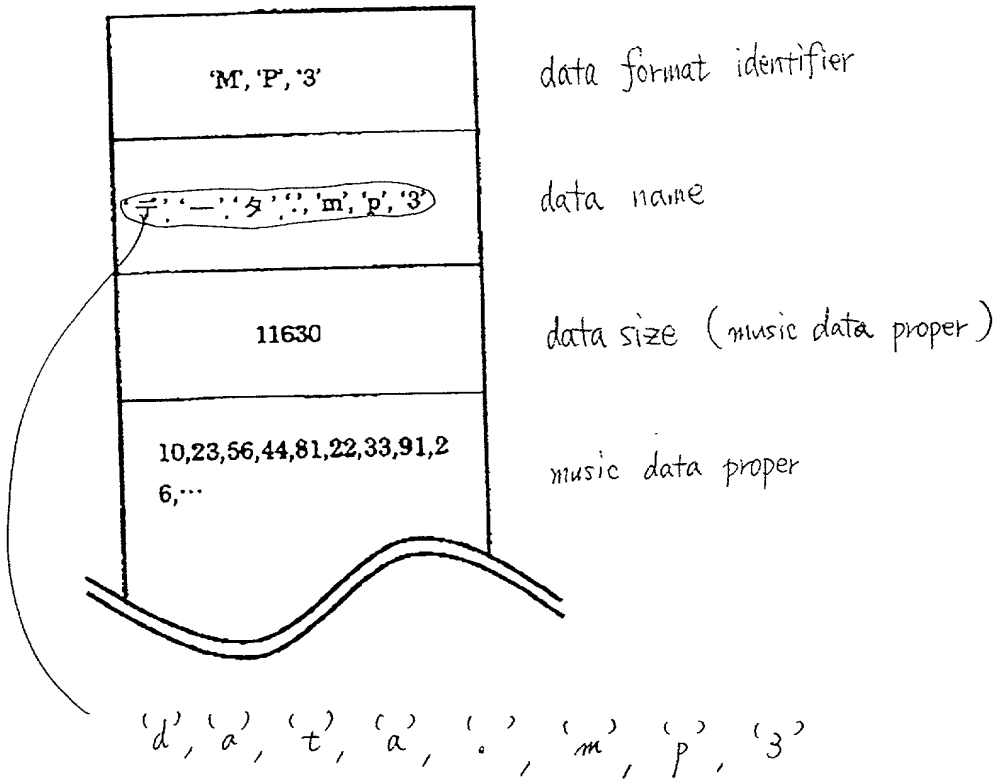 'M', 'P', '3'
data format identifier
'デ', 'ー', 'タ', '.', 'm', 'p', '3'
data name
11630
data size (music data proper)
10,23,56,44,81,22,33,91,2
6,…
music data proper
'd', 'a', 't', 'a', '.', 'm', 'p', '3'